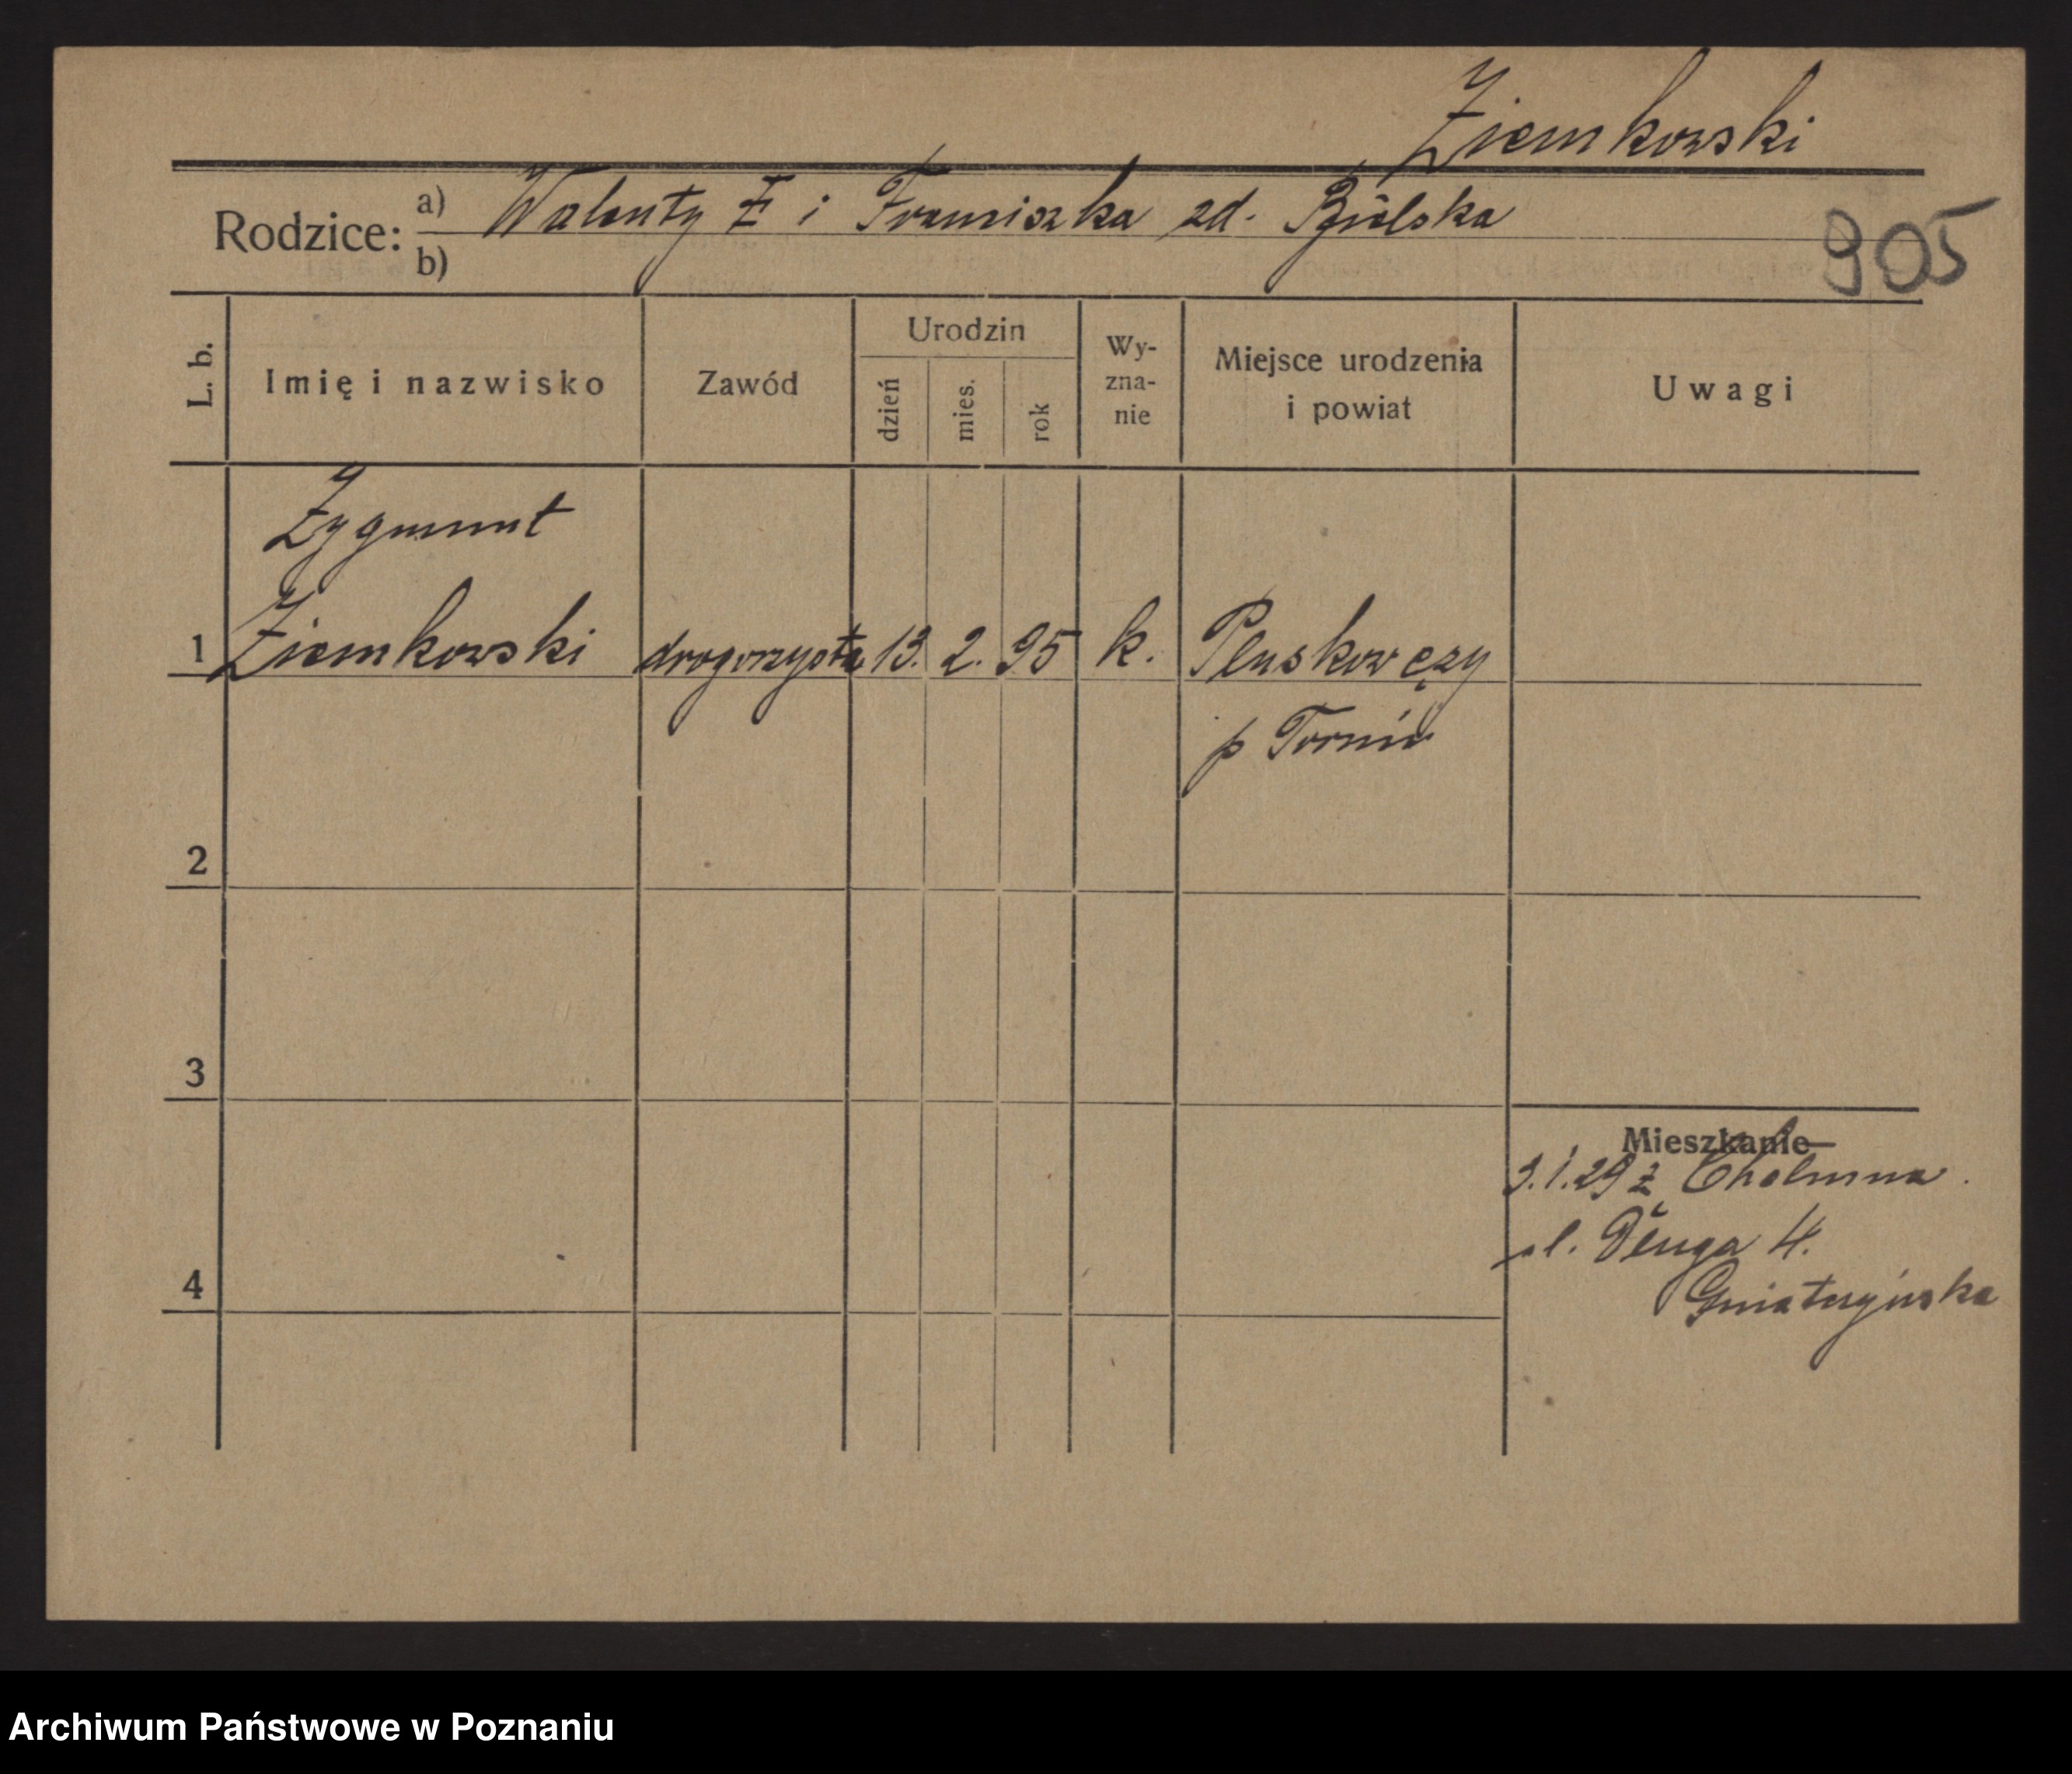 Ziemkowski
Rodzice: a) Walenty Z i Franciszka zd. Bielska
b)
905
L. b.
Imię i nazwisko
Zawód
Urodzin
dzień
mies.
rok
Wy-
zna-
nie
Miejsce urodzenia
i powiat
Uwagi
Zygmunt
1 Ziemkowski drogerzysta 13. 2. 95 k. Pluskowęzy
p Toruń
2
3
Mieszkanie
3.1.29 z Chełmna.
ul. Długa 4.
4
Archiwum Państwowe w Poznaniu